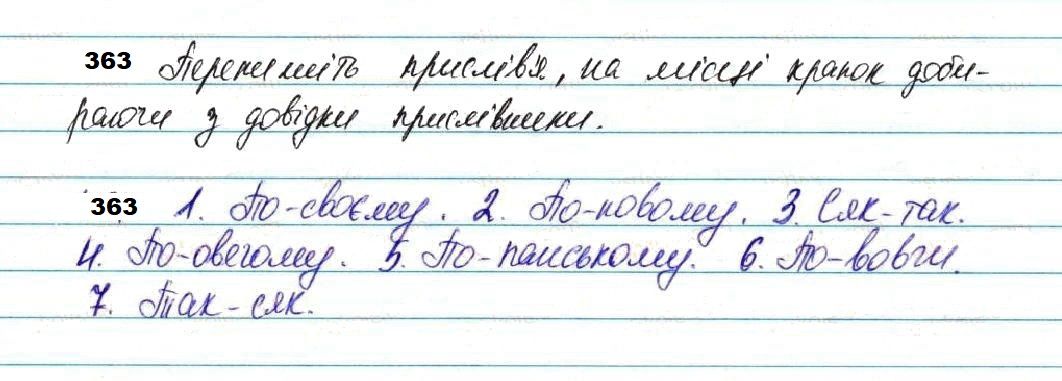 363 Перепишіть прислів'я, на місці крапок доби-
раючи з довідки прислівники.
363 1. По-своєму. 2. По-новому. 3. Сяк-так.
4. По-овечому. 5. По-панському. 6. По-вовчи.
7. Так-сяк.